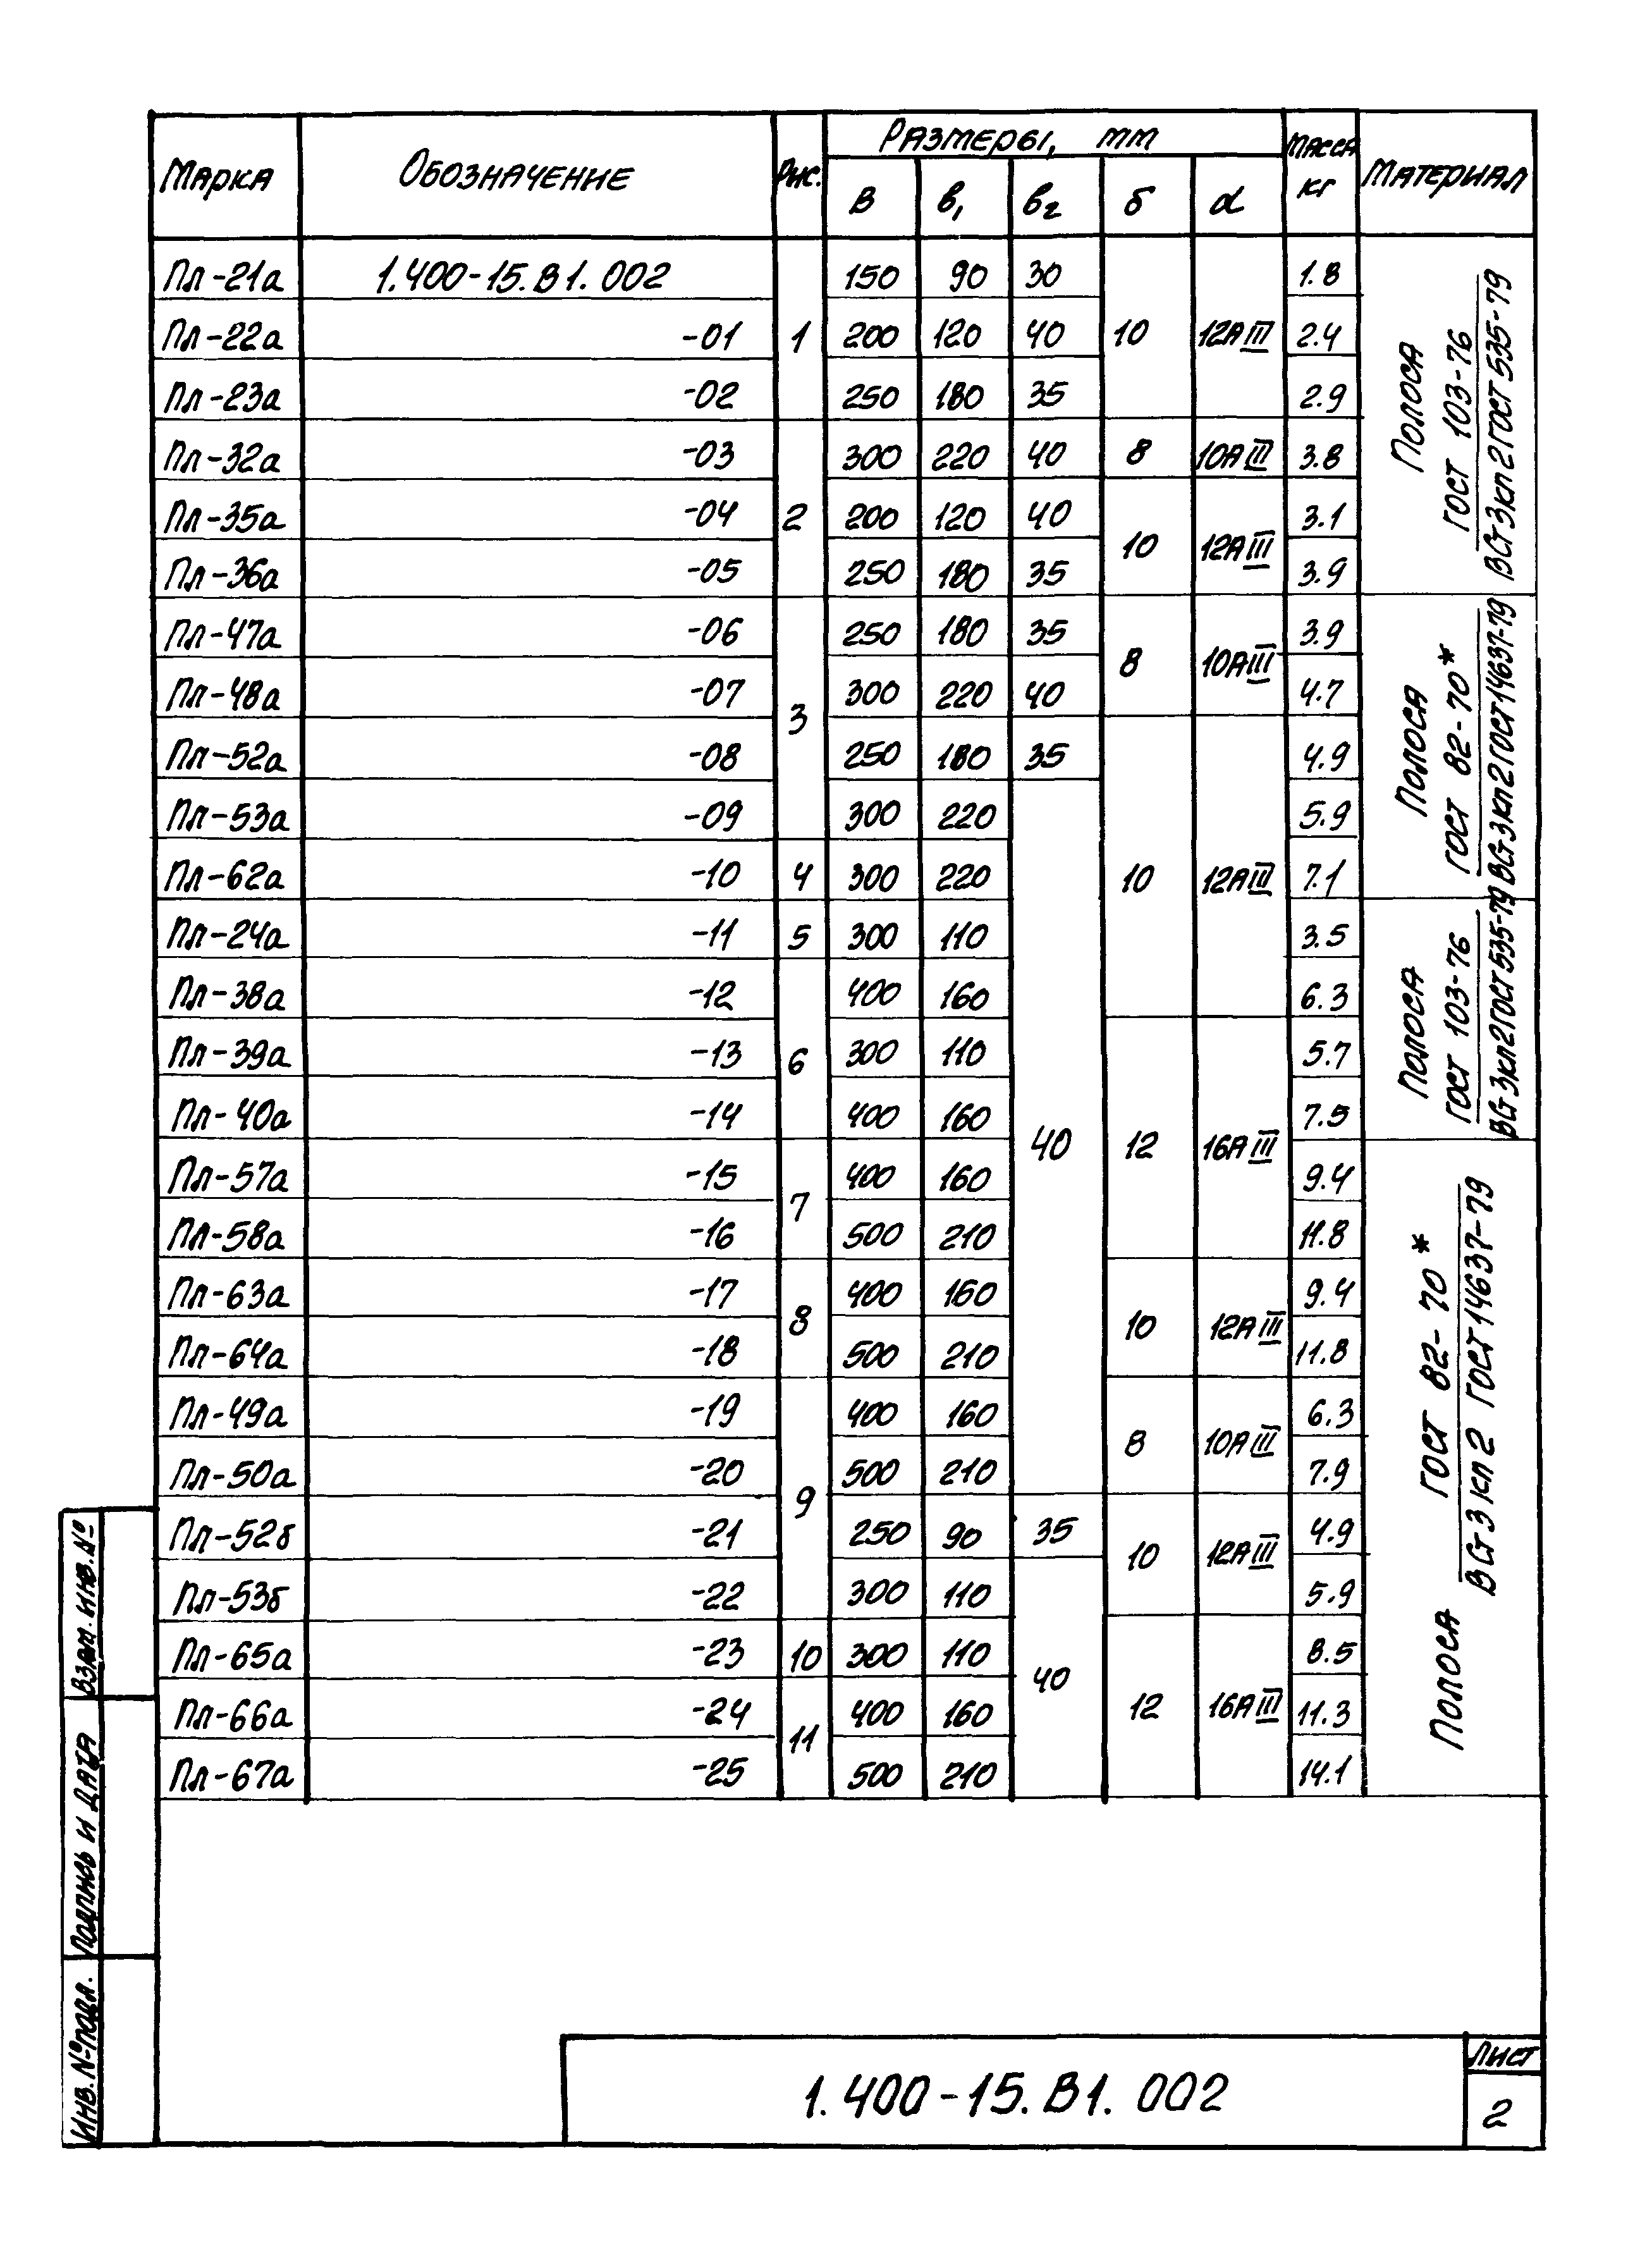 Марка Обозначение Рис. Размеры, мм Масса кг Материал
В в1 в2 б d
Пл-21а 1.400-15.В1.002 150 90 30 1.8
Пл-22а -01 1 200 120 40 10 12АIII 2.4
Пл-23а -02 250 180 35 2.9
Пл-32а -03 300 220 40 8 10АIII 3.8
Пл-35а -04 2 200 120 40 3.1
Пл-36а -05 250 180 35 10 12АIII 3.9
Полоса ГОСТ 103-76 / ВСт3кп2 ГОСТ 535-79
Пл-47а -06 250 180 35 3.9
Пл-48а -07 3 300 220 40 8 10АIII 4.7
Пл-52а -08 250 180 35 4.9
Пл-53а -09 300 220 5.9
Пл-62а -10 4 300 220 10 12АIII 7.1
Полоса ГОСТ 82-70* / ВСт3кп2 ГОСТ 14637-79
Пл-24а -11 5 300 110 3.5
Пл-38а -12 400 160 6.3
Пл-39а -13 6 300 110 5.7
Пл-40а -14 400 160 40 12 16АIII 7.5
Полоса ГОСТ 103-76 / ВСт3кп2 ГОСТ 535-79
Пл-57а -15 7 400 160 9.4
Пл-58а -16 500 210 11.8
Пл-63а -17 8 400 160 9.4
Пл-64а -18 500 210 10 12АIII 11.8
Пл-49а -19 400 160 6.3
Пл-50а -20 9 500 210 8 10АIII 7.9
Пл-52б -21 250 90 35 4.9
Пл-53б -22 300 110 10 12АIII 5.9
Пл-65а -23 10 300 110 40 8.5
Пл-66а -24 11 400 160 12 16АIII 11.3
Пл-67а -25 500 210 14.1
Полоса ГОСТ 82-70* / ВСт3кп2 ГОСТ 14637-79
Взам. инв. №
Подпись и дата
Инв. № подл.
1.400-15.В1.002
Лист
2